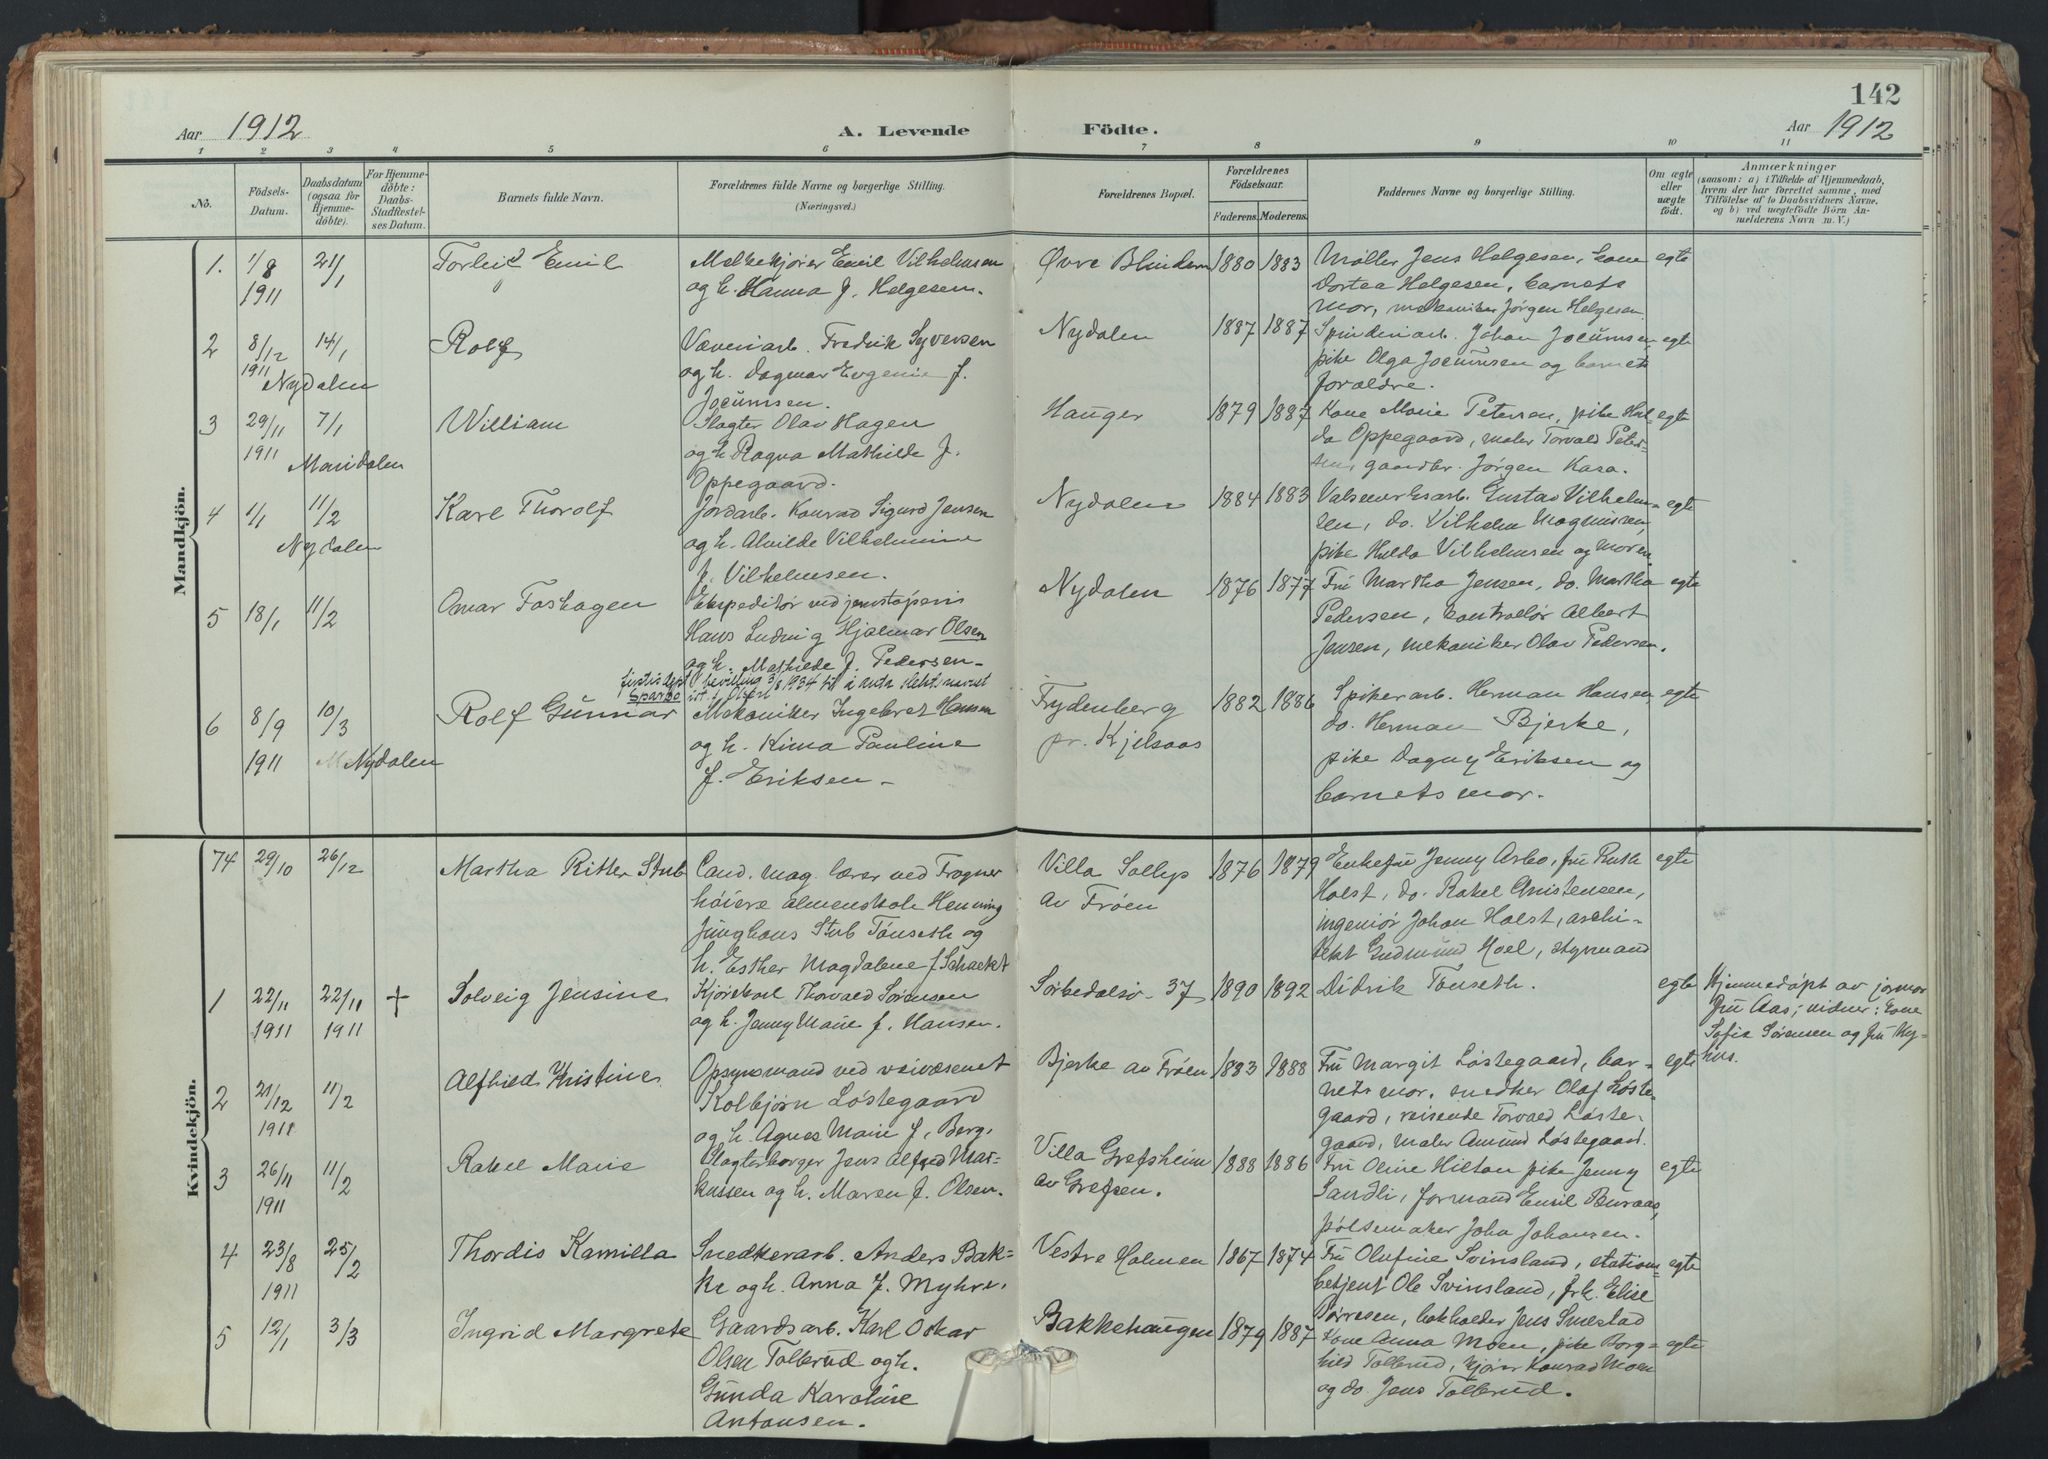 142
Aar 1912
A. Levende Födte.
Aar 1912
1 2 3 4 5 6 7 8 9 10 11
No.
Födsels-
Datum.
Daabsdatum
(ogsaa for
Hjemme-
döbte).
For Hjemme-
döbte:
Daabs-
Stadfæstel-
ses Datum.
Barnets fulde Navn.
Forældrenes fulde Navne og borgerlige Stilling.
(Næringsvei.)
Forældrenes Bopæl.
Forældrenes
Födselsaar.
Faderens. Moderens.
Faddernes Navne og borgerlige Stilling.
Om ægte
eller
uægte
födt.
Anmærkninger
(saasom: a) i Tilfælde af Hjemmedaab,
hvem der har forrettet samme, med
Tilföielse af to Daabsvidners Navne,
og b) ved uægtefödte Börn An-
melderens Navn m. V.)
Mandkjön.
1. 1/8 1911 21/1
Torleif Emil
Melkekjører Emil Vilhelmsen
og h. Hanna f. Helgesen.
Øvre Blindern 1880 1883
Møller Jens Helgesen, kone
Dortea Helgesen, barnets
mor, mekaniker Jørgen Helgesen.
egte
2 8/12 1911 14/1
Nydalen
Rolf
Væveriarb. Fredrik Syversen
og h. Dagmar Evgenie f.
Jocumsen.
Nydalen 1887 1887
Spinderiarb. Johan Jocumsen,
pike Olga Jocumsen og barnets
forældre.
egte
3 29/11 1911 7/1
Maridalen
William
Slagter Olav Hagen
og h. Ragna Mathilde f.
Oppegaard.
Hauger 1879 1887
Kone Marie Petersen, pike Hul-
da Oppegaard, maler Torvald Peter-
sen, gaardbr. Jørgen Kasa.
egte
4 1/1 11/2
Nydalen
Karl Thorolf
Jordarb. Konrad Sigurd Jensen
og h. Alvilde Vilhelmine
f. Vilhelmsen.
Nydalen 1884 1883
Valseverksarb. Gustav Vilhelm-
sen, do. Vilhelm Magnussen,
pike Hulda Vilhelmsen og moren.
egte
5 18/1 11/2
Omar Foshagen
Ekspeditør ved jernstøperi
Hans Ludvig Hjalmar Olsen
og h. Mathilde f. Pedersen-
Nydalen 1876 1877
Fru Martha Jensen, do. Martha
Pedersen, kontrollør Albert
Jensen, mekaniker Olav Pedersen.
egte
6 8/9 1911 10/3
Nydalen
Rolf Gunnar
Mekaniker Ingebret Hansen
og h. Kima Pauline
f. Eriksen-
Frydenberg
pr. Kjelsaas
1882 1886
Spikerarb. Herman Hansen,
do. Herman Bjerke,
pike Dagny Eriksen og
barnets mor.
egte
Kvindekjön.
74 29/10 26/12
Martha Ritter Stub
Cand. mag. lærer ved Frogner
høiere almenskole Henning
Junghans Stub Tönseth og
h. Esther Magdalene f. Schackt
Villa Solhys
av Frøen
1876 1879
Enkefru Jenny Arbo, fru Ruth
Holst, do. Rakel Christensen,
ingeniør Johan Holst, archi-
tekt Gudmund Hoel, styrmand
Didrik Tönseth.
egte
1 22/11 1911 22/11 1911 +
Solveig Jensine
Kjørekarl Thorvald Sørensen
og h. Jenny Marie f. Hansen.
Sørkedalsv. 37 1890 1892
egte
Hjemmedøpt av jormor
fru Aas; vidner: kone
Sofie Sørensen og fru Ny-
hus.
2 21/12 1911 11/2
Alfhild Kristine
Opsynsmand ved veivæsenet
Kolbjørn Løstegaard
og h. Agnes Marie f. Berg.
Bjerke av Frøen 1883 1888
Fru Margit Løstegaard, bar-
nets mor, snedker Olaf Løste-
gaard, reisende Torvald Løste-
gaard, maler Amund Løstegaard.
egte
3 26/11 1911 11/2
Rakel Marie
Slagterborger Jens Alfred Mar-
kussen og h. Maren f. Olsen.
Villa Grefsheim
av Grefsen.
1888 1886
Fru Oline Hilton pike Jenny
Sandli, formand Emil Buraas,
pølsemaker John Johansen.
egte
4 23/8 1911 25/2
Thordis Kamilla
Snedkerarb. Anders Bak-
ke og h. Anna f. Myhre.
Vestre Holmen 1867 1874
Fru Olufine Svinsland, stations-
betjent Ole Svinsland, frk. Elise
Torresen, bokholder Jens Smestad
egte
5 12/1 3/3
Ingrid Margrete
Gaardsarb. Karl Oskar
Olsen Tollerud og h.
Gunda Karoline
Antonsen.
Bakkehaugen 1879 1887
Kone Anna Moen, pike Borg-
hild Tollerud, kjører Konrad Moen
og do. Jens Tollerud.
egte